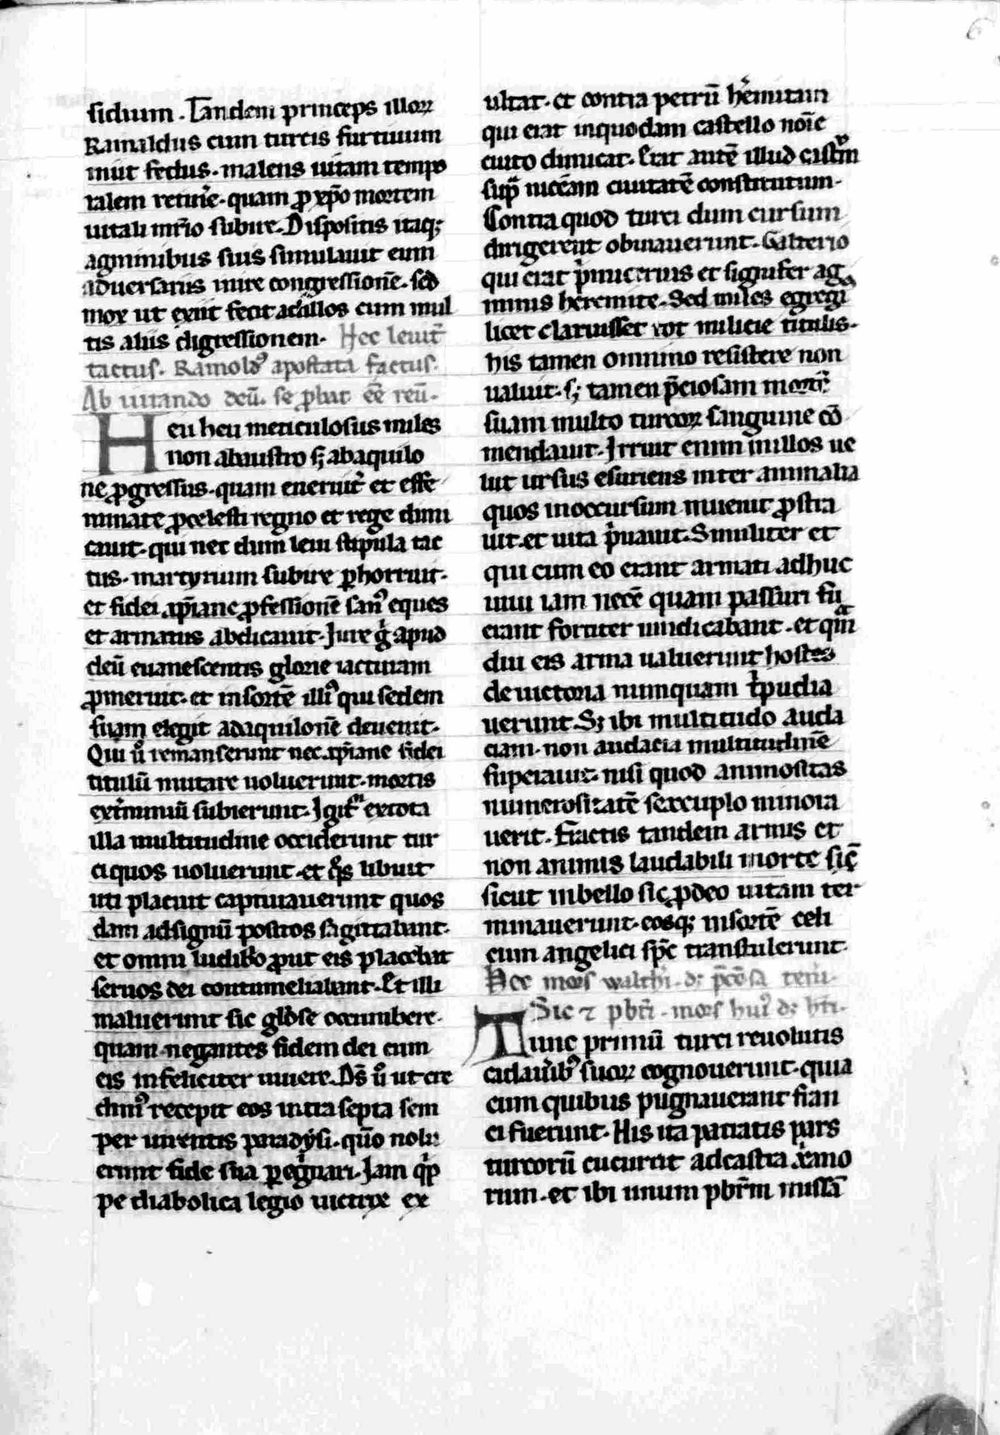 sidium. Tandem princeps illoꝝ
Rainaldus cum turcis furtiuum
iniit fedus. malens uitam tempo
ralem retin̄e. quam ꝓ xp̄o mortem
uitali mr̄io subire. Dispositis itaq;
agminibus suis simulauit eum
aduersariis inire congressionē. sed
mox ut exiit fecit ad illos cum mul
tis aliis digressionem. Hec leuit̄
tactus. Ramoldꝰ apostata factus.
Ab iurando deū. se ꝓbat eē reū.
Heu heu meticulosus miles
non abaustro sꝫ abaquilo
ne ꝓgressus. quam eneruit̄ et effe
minate ꝓ celesti regno et rege dimi
cauit. qui nec dum leui stipula tac
tus. martyrium subire ꝑhorruit.
et fidei xp̄iane ꝓfessionē sanꝰ eques
et armatus abdicauit. Jure gͥ apud
deū euanescentis glorie iacturam
ꝓmeruit. et insortē illiꝰ qui sedem
suam elegit adaquilonē deuenit.
Qui ū remanserunt nec xp̄iane fidei
titulū mutare uoluerunt. mortis
ext̄miniū subierunt. Jgit᷑ extota
illa multitudine occiderunt tur
ci quos uoluerunt. et qͦs libuit
uti placuit captiuauerunt quos
dam adsignū positos sagittabant.
et omni ludibͦo ꝓut eis placebat
seruos dei contumeliabant. Et illi
maluerunt sic glōse occumbere.
quam negantes fidem dei cum
eis infeliciter uiuere. Ds̄ ū ut cre
dimꝰ recepit eos intra septa sem
per uirentis paradysi. qm̄o nolu
erunt fide sua ꝑegͥnari. Jam qͥp
pe diabolica legio uictrix ex
ultat. et contra petrū hēmitam
qui erat inquodam castello noīe
ciuito dimicat. Erat autē illud castrm̄
supͣ nicēam ciuitatē constitutum.
Contra quod turci dum cursum
dirigerent obuiauerunt. Galterio
qui erat pͥmicerius et signifer ag
minis heremite. Sed miles egregi
licet claruisset tot milicie titulis.
his tamen omnino resistere non
ualuit. sꝫ tamen p̄ciosam mortē
suam multo turcoꝝ sanguine cō
mendauit. Jrruit enim inillos ue
lut ursus esuriens inter animalia
quos inoccursum inuenit ꝓstra
uit. et uita pͥuauit. Similiter et
qui cum eo erant armati adhuc
uiui iam necē quam passuri fu
erant fortiter uindicabant. et qͣm
diu eis arma ualuerunt hostes
de uictoria numquam tͥpudia
uerunt. Sꝫ ibi multitudo auda
ciam. non audacia multitudinē
superauit. nisi quod animositas
numerositatē sexcuplo minora
uerit. Fractis tandem armis et
non animis laudabili morte sic̄
sicut inbello sic ꝓ deo uitam ter
minauerunt. eosq; insortē celi
cum angelici sp̄c transtulerunt.
Hec mors walthi. d̄ p̄cōsa teneri.
Sic ⁊ pbr̄i. mors huiꝰ d̄ hr̄i.
Tunc primū turci reuolutis
cadau̇ibꝰ suoꝝ cognouerunt. quia
cum quibus pugnauerant fran
ci fuerunt. His ita patratis pars
turcorū cucurrit adcastra xͥano
rum. et ibi unum pbr̄m missā